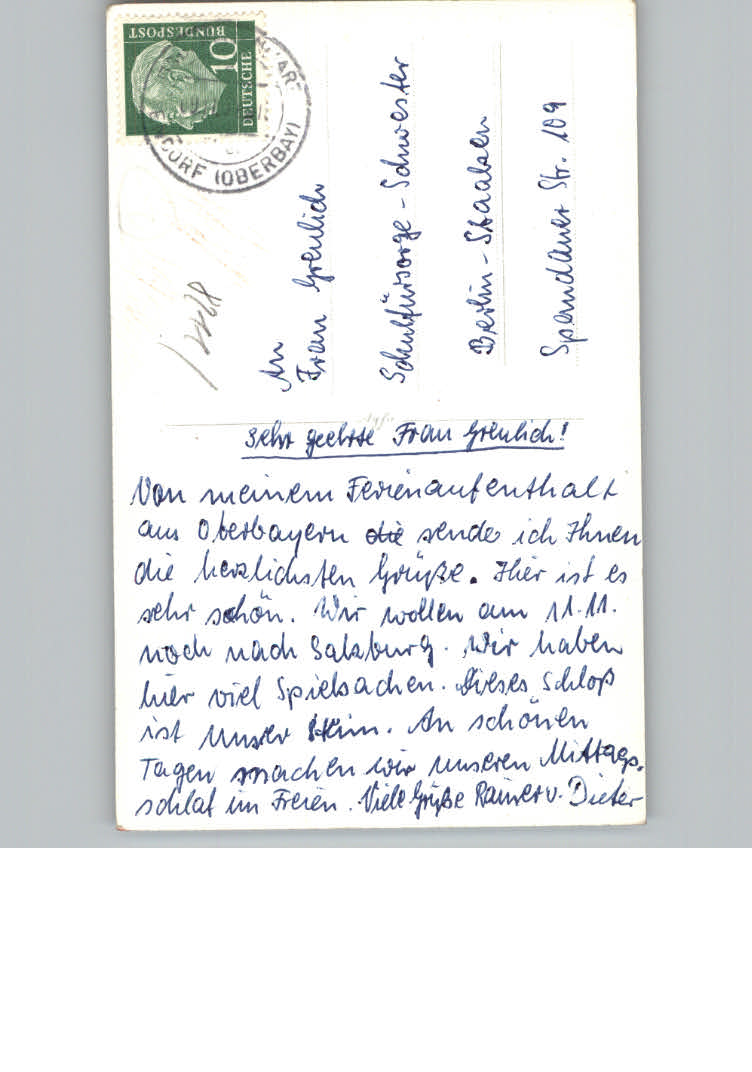 DEUTSCHE
BUNDESPOST
10
NDORF (OBERBAY)
An
Frau Greulich
Schulfürsorge-Schwester
Berlin-Staaken
Spandauer Str. 109
Agfa
Sehr geehrte Frau Greulich!
Von meinem Ferienaufenthalt
aus Oberbayern die sende ich Ihnen
die herzlichsten Grüße. Hier ist es
sehr schön. Wir wollen am 11.11.
noch nach Salzburg. Wir haben
hier viel Spielsachen. Dieses Schloß
ist unser Heim. An schönen
Tagen machen wir unseren Mittags-
schlaf im Freien. Viele Grüße Rainer u. Dieter